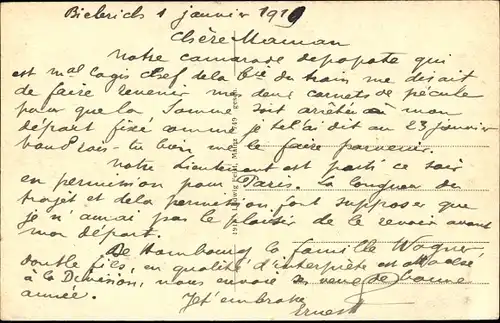 Bieberich 1 janvier 1919
Chère Maman
Notre camarade de popote qui
est mal Logis chef de la Cie du train me disait
de faire revenir mes deux carnets de pécule
pour que la Somme soit arrêtée à mon
départ fixé comme je te l'ai dit au 23 janvier
Voudrais-tu bien me le faire parvenir.
Notre Lieutenant est parti ce soir
en permission pour Paris. La longueur du
trajet et de la permission font supposer que
je n'aurai pas le plaisir de le revoir avant
mon départ.
De Hambourg la famille Wagner,
dont le fils, en qualité d'interprète est attaché
à la Division, nous envoie ses vœux de bonne
année.
Je t'embrasse
Ernest